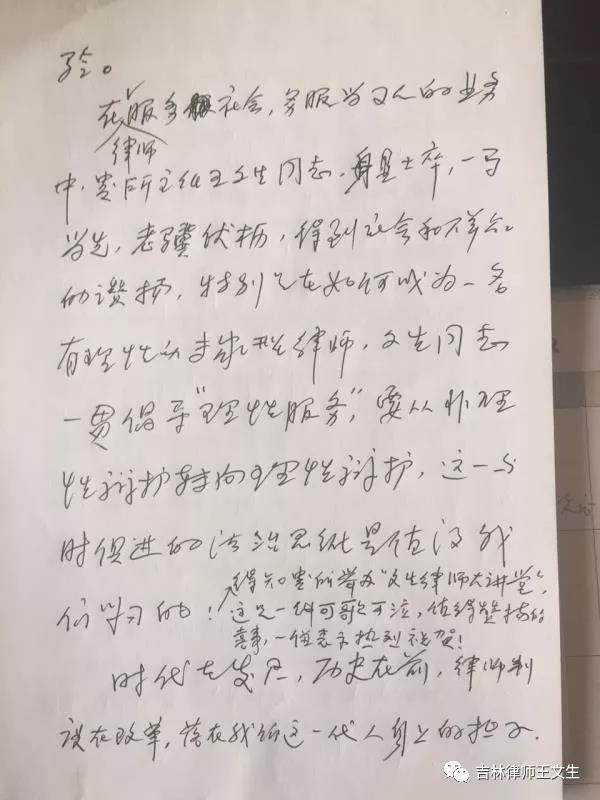 验。
在服务社会,务服当文人的业务
律师
中,贵所主任王文生同志,身先士卒,一马
当先,老骥伏枥,得到社会和百姓
的讚扬,特别是在如何成为一名
有理性的专家型律师,文生同志
一贯倡导“理性服务”,要从非理
性辩护转向理性辩护,这一与
时俱进的法治思维是值得我
们学习的!
得知贵所举办“文生律师大讲堂”,
这是一件可歌可泣,值得赞扬的
喜事,一併表示热烈祝贺!
时代在发展,历史在前,律师制
度在改革,落在我们这一代人身上的担子
吉林律师王文生